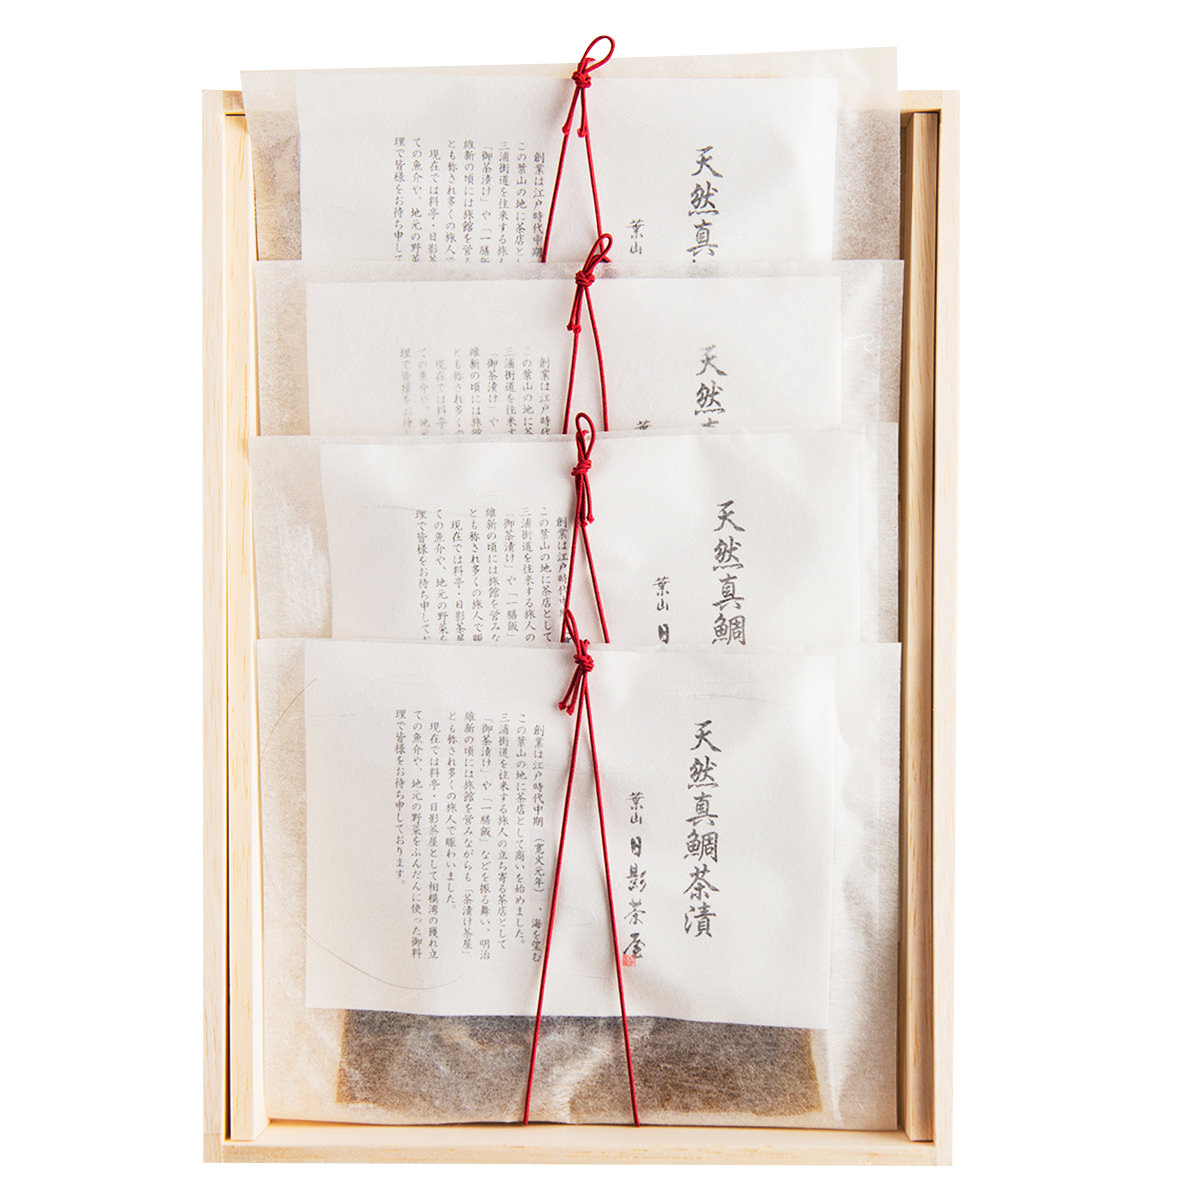 天然真
葉山
創業は江戸時代中期
この葉山の地に茶店とし
三浦街道を往来する旅人
「御茶漬け」や「一膳飯
維新の頃には旅館を営み
とも称され多くの旅人で
現在では料亭・日影茶
ての魚介や、地元の野菜
理で皆様をお待ち申して
天然
創業は江戸時代
この葉山の地に茶店
三浦街道を往来す
「御茶漬け」や
維新の頃には旅館
とも称され多くの
現在では料亭
ての魚介や、地元
理で皆様をお待
天然真鯛
葉山 日
創業は江戸時代中
この葉山の地に茶店として
三浦街道を往来する旅人の
「御茶漬け」や「一膳飯」
維新の頃には旅館を営みな
とも称され多くの旅人で賑
現在では料亭・日影茶屋
ての魚介や、地元の野菜を
理で皆様をお待ち申してお
天然真鯛茶漬
葉山 日影茶屋
創業は江戸時代中期(寛文元年)、海を望む
この葉山の地に茶店として商いを始めました。
三浦街道を往来する旅人の立ち寄る茶店として
「御茶漬け」や「一膳飯」などを振る舞い、明治
維新の頃には旅館を営みながらも「茶漬け茶屋」
とも称され多くの旅人で賑わいました。
現在では料亭・日影茶屋として相模湾の獲れ立
ての魚介や、地元の野菜をふんだんに使った御料
理で皆様をお待ち申しております。